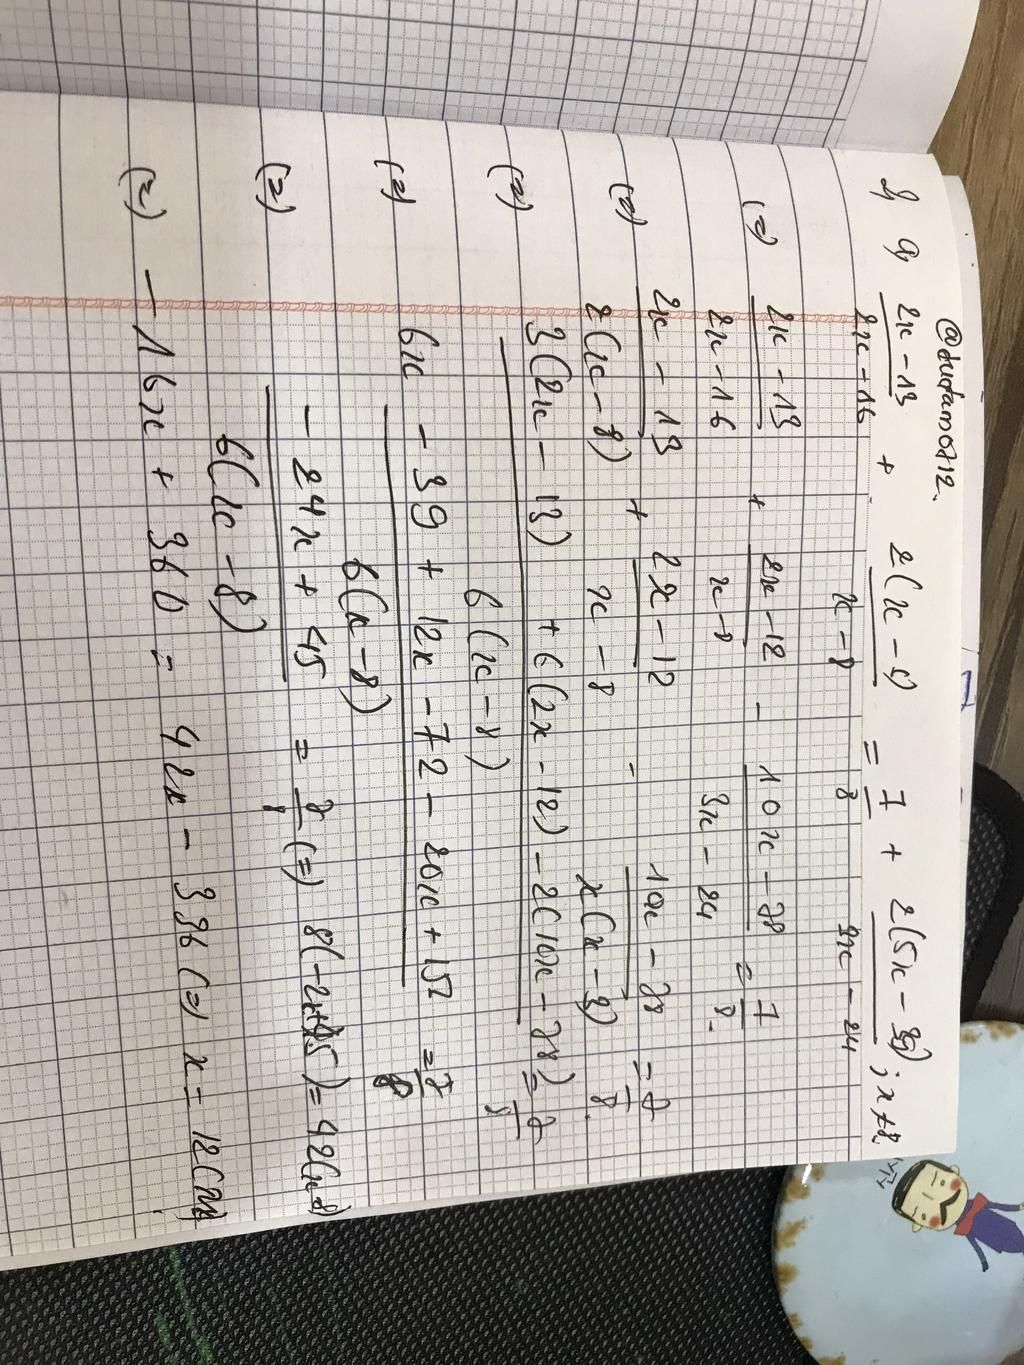 @ductam0712.
2x - 13 / 2x - 16 + 2(x - 6) / x - 8 = 7 / 8 + 2(5x - 39) / 3x - 24 ; x ≠ 8
(=) 2x - 13 / 2x - 16 + 2x - 12 / x - 8 - 10x - 78 / 3x - 24 = 7 / 8.
(=) 2x - 13 / 2(x - 8) + 2x - 12 / x - 8 - 10x - 78 = 7 / 8.
(=) 3(2x - 13) + 6(2x - 12) - 2(10x - 78) / 6(x - 8) = 7 / 8
(=) 6x - 39 + 12x - 72 - 20x + 152 / 6(x - 8) = 7 / 8
(=) - 24x + 45 / 6(x - 8) = 7 / 8 (=) = 42(x-8)
(=) - 16x + 360 = 42x - 336 (=) x = 12 (TM)